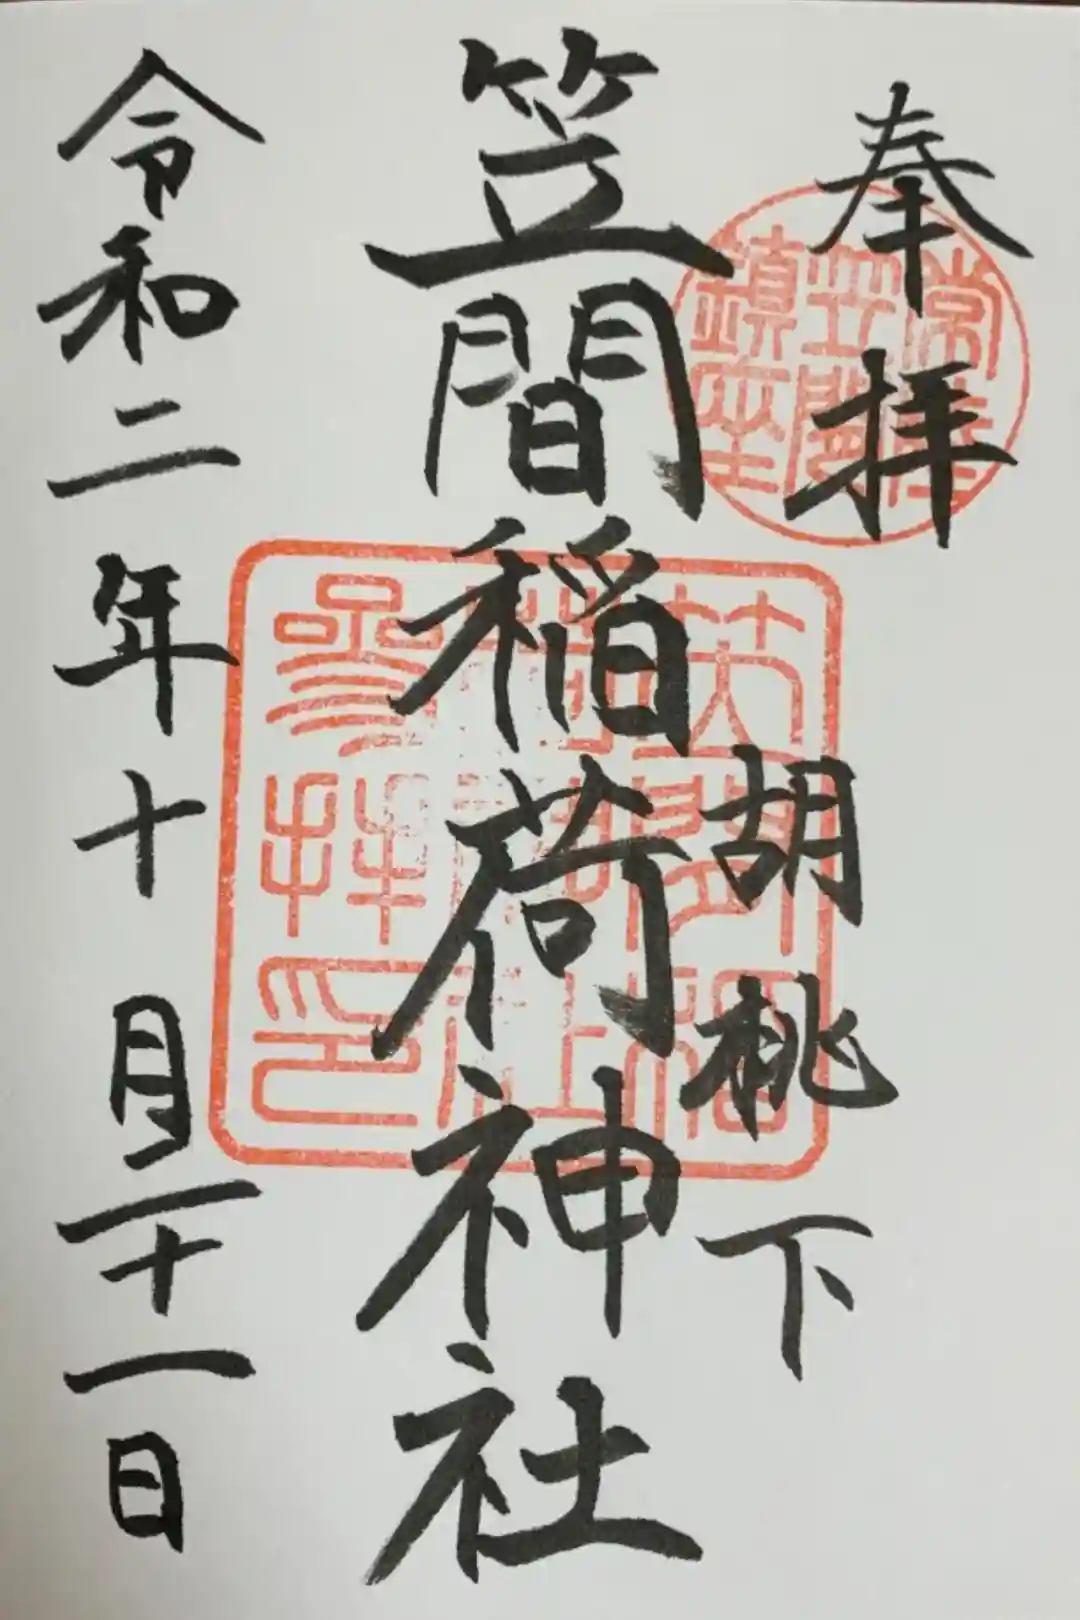 奉拝
常陸
笠間
鎮座
胡桃下
笠間稲荷神社
笠間稲
荷神社
参拝印
令和二年十月二十一日